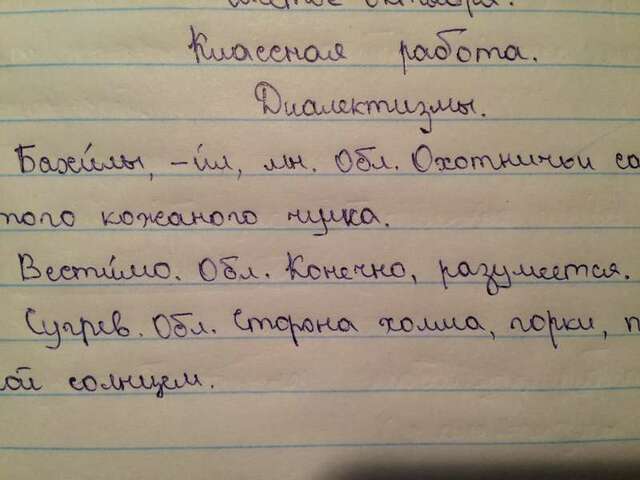 октября.
Классная работа.
Диалектизмы.
Бахи́лы, -и́л, мн. Обл. Охотничьи са
того кожаного чулка.
Вести́мо. Обл. Конечно, разумеется.
Сугрев. Обл. Сторона холма, горки, п
ой солнцем.